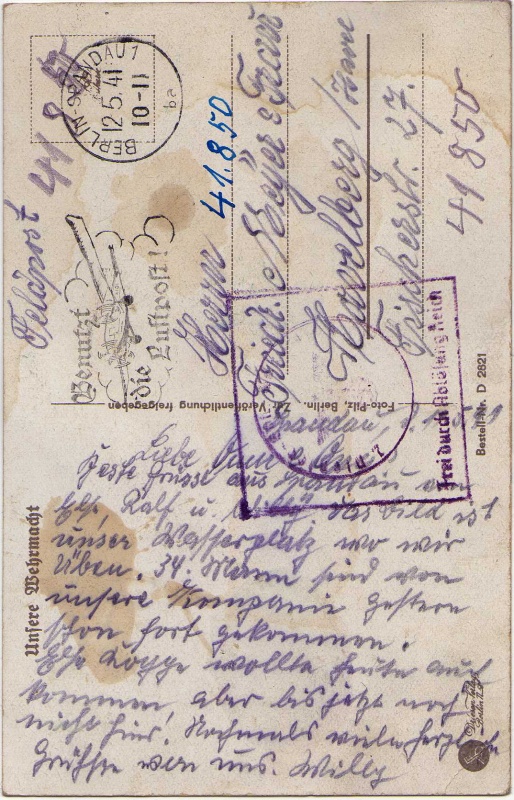 Feldpost
41850
BERLIN-SPANDAU 1
12.5.41
10-11
ba
Benutzt
die Luftpost!
41.8.50
Herrn
Friedr. Meyer & Frau
Havelberg
Fischerstr. 27.
41850
Frei durch Ablösung Reich
Unsere Wehrmacht
Foto-Pilz, Berlin. Zur Veröffentlichung freigegeben
Bestell-Nr. D 2821
Spandau,
Liebe
Grüsse aus Spandau von
Else, Ralf u. das Bild ist
unser Wasserplatz wo wir
Üben. 34. Mann sind von
unsere Kompanie gestern
schon fort gekommen.
Else wollte heute auch
kommen aber bis jetzt noch
nicht hier! Nochmals viele herzliche
Grüsse von uns. Willy